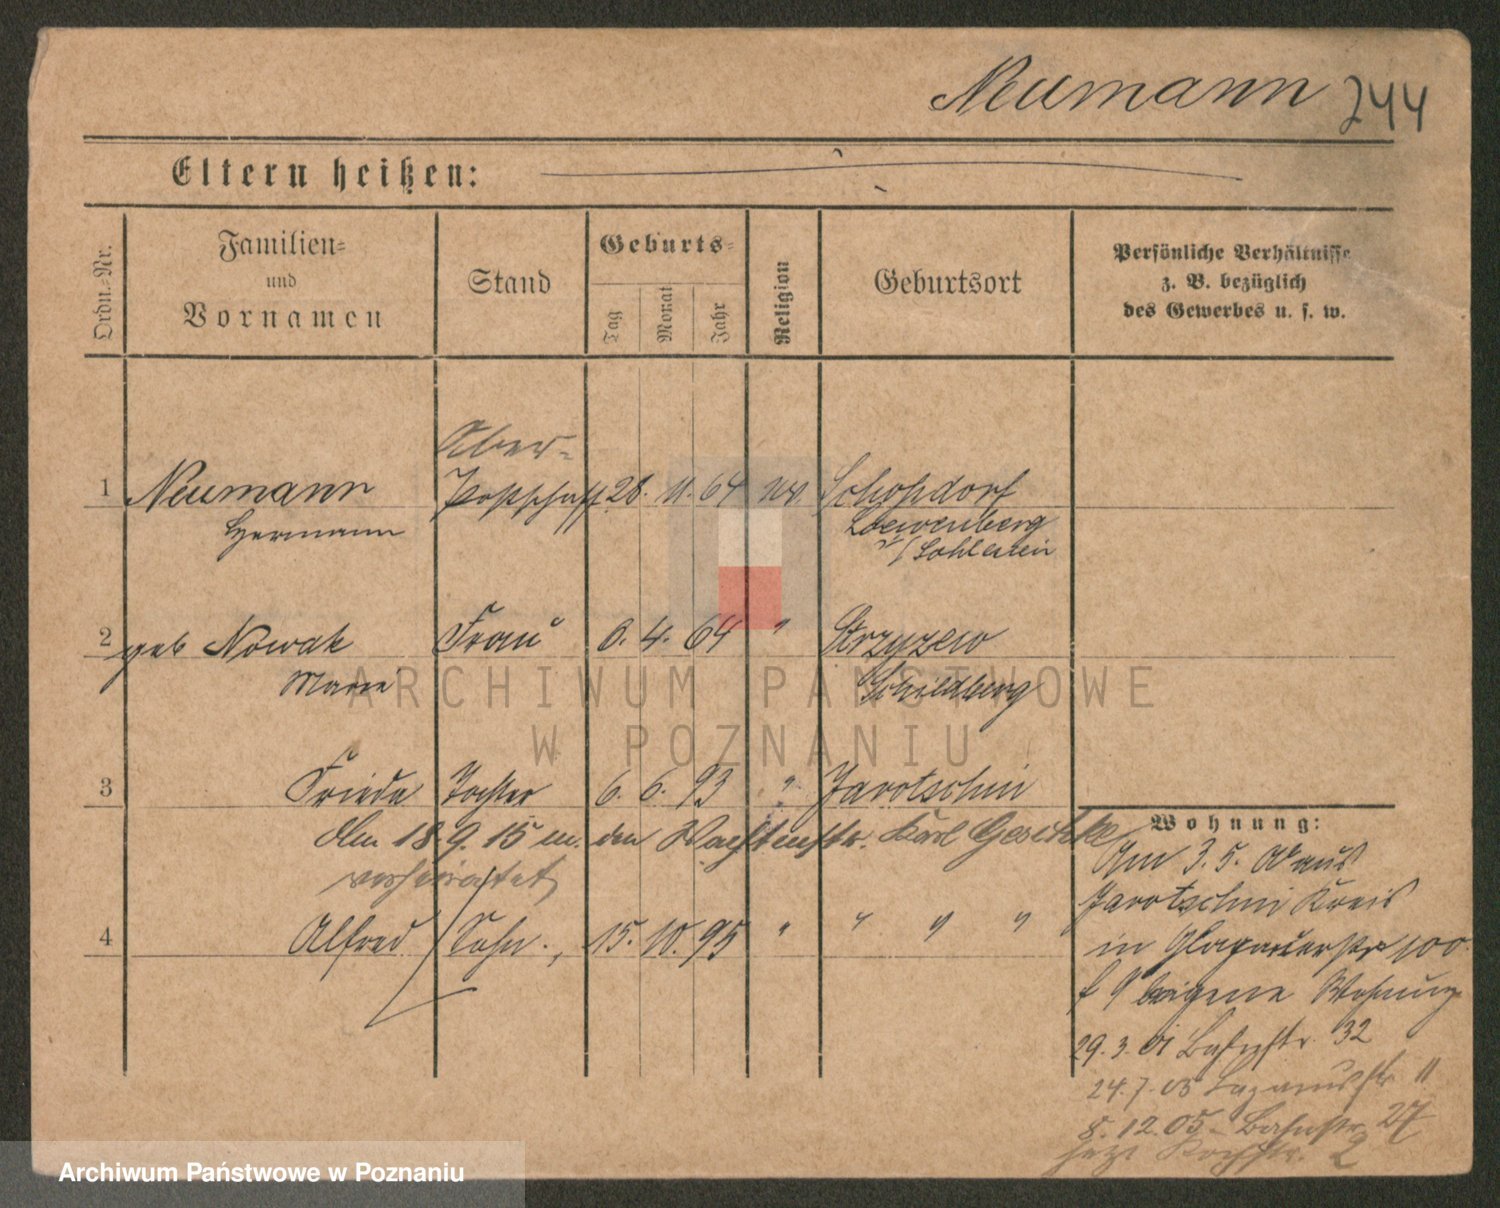 Neumann 244
Eltern heißen:
Ordn.-Nr.
Familien-
und
Vornamen
Stand
Geburts-
Tag
Monat
Jahr
Religion
Geburtsort
Persönliche Verhältnisse
z. B. bezüglich
des Gewerbes u. s. w.
Ober-
1 Neumann Postschaff 28. 11. 64 Schossdorf
Hermann Loewenberg
2 geb Nowak Frau 6. 4. 64 " Strzyzew
Marie Schildberg
3 Frieda Tochter 6. 6. 93 " Jarotschin
Am 18.9.15 m. den Karl Geschke
verheiratet
4 Alfred Sohn 15. 10. 95 " " " "
Wohnung:
Am 3. 5. aus
Jarotschin Kreis
in Glogauerstr 100
eigene Wohnung
29. 3. 01 Bahnstr 32
24. 7. 05 Lazarusstr 11
8. 12. 05 Bahnstr 27
jetzt Kochstr. 2
ARCHIWUM PAŃSTWOWE
W POZNANIU
Archiwum Państwowe w Poznaniu